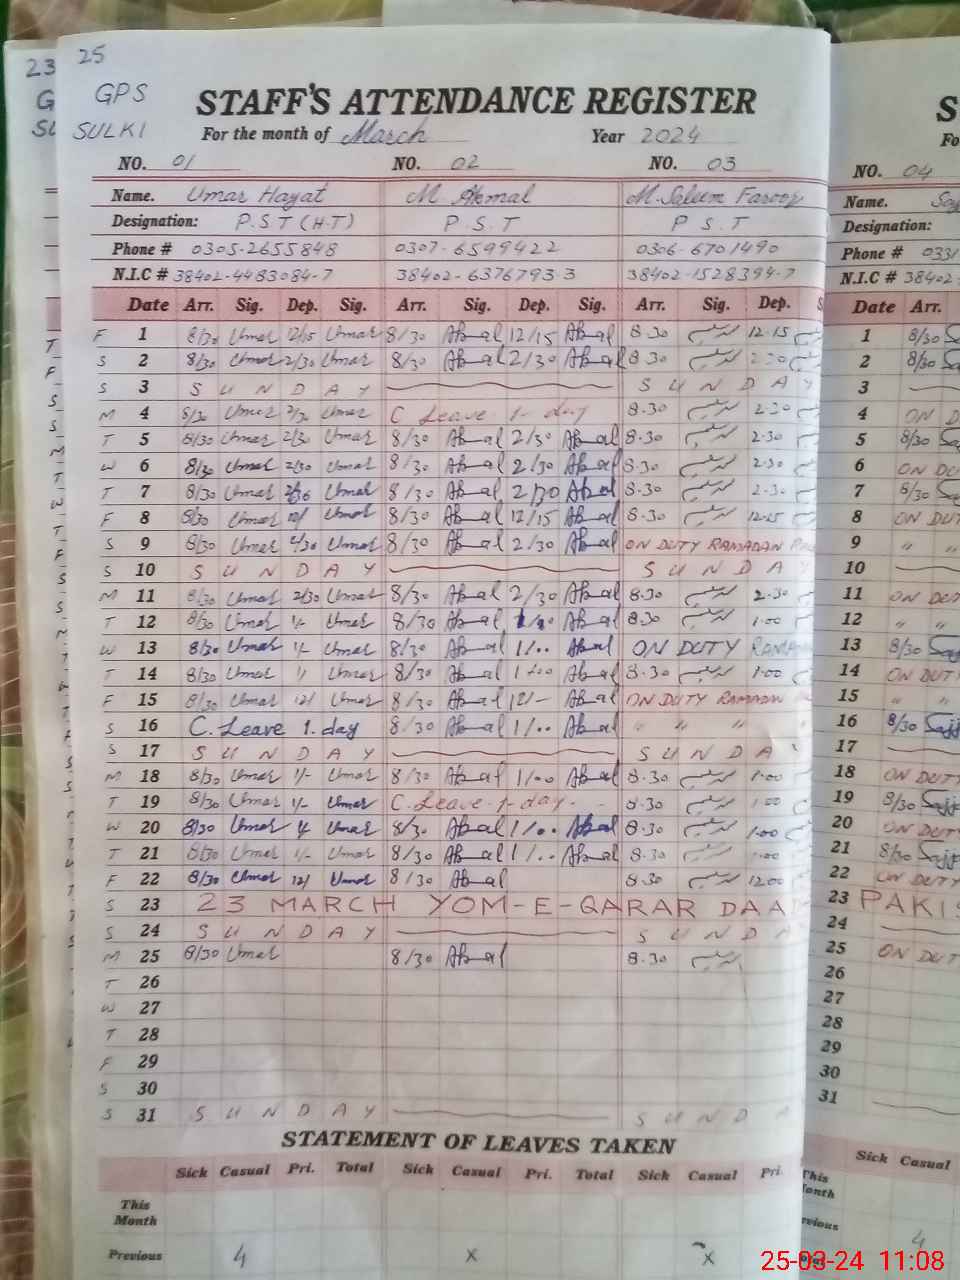 23 25
G GPS STAFF'S ATTENDANCE REGISTER S
SU SULKI For the month of March Year 2024 Fo
NO. 01 NO. 02 NO. 03 NO. 04
Name. Umar Hayat M. Akmal M. Saleem Farooq Name.
Designation: P.S.T (H.T) P.S.T P.S.T Designation:
Phone # 0305-2655848 0307-6599422 0306-6701490 Phone # 0331
N.I.C # 38402-4483084-7 38402-6376793 3 38402-1528394-7 N.I.C # 38402
Date Arr. Sig. Dep. Sig. Arr. Sig. Dep. Sig. Arr. Sig. Dep. S Date Arr.
F 1 8/30 Umar 12/15 Umar 8/30 Akmal 12/15 Akmal 8-30 12-15 1 8/30
S 2 8/30 Umar 2/30 Umar 8/30 Akmal 2/30 Akmal 8-30 2-30 2 8/30
S 3 S U N D A Y S U N D A Y 3
M 4 8/30 Umar 2/30 Umar C Leave 1- day 8-30 2-30 4 ON D
T 5 8/30 Umar 2/30 Umar 8/30 Akmal 2/30 Akmal 8-30 2-30 5 8/30
W 6 8/30 Umar 2/30 Umar 8/30 Akmal 2/30 Akmal 8-30 2-30 6 ON DU
T 7 8/30 Umar 2/30 Umar 8/30 Akmal 2/30 Akmal 8-30 2-30 7 8/30
F 8 8/30 Umar 12/ Umar 8/30 Akmal 12/15 Akmal 8-30 12-15 8 ON DUT
S 9 8/30 Umar 2/30 Umar 8/30 Akmal 2/30 Akmal ON DUTY RAMADAN 9 " "
S 10 S U N D A Y S U N D A 10
M 11 8/30 Umar 2/30 Umar 8/30 Akmal 2/30 Akmal 8-30 2-30 11 ON DUT
T 12 8/30 Umar 1/- Umar 8/30 Akmal Akmal 8-30 1-00 12 " "
W 13 8/30 Umar 1/- Umar 8/30 Akmal 1/00 Akmal ON DUTY RAMA 13 8/30
T 14 8/30 Umar 1/ Umar 8/30 Akmal 1/00 Akmal 8-30 1-00 14 ON DUT
F 15 8/30 Umar 12/ Umar 8/30 Akmal 12/- Akmal ON DUTY RAMADAN 15 " "
S 16 C. Leave 1. day 8/30 Akmal 1/00 Akmal " " " 16 8/30
S 17 S U N D A Y S U N D A 17
M 18 8/30 Umar 1/- Umar 8/30 Akmal 1/00 Akmal 8-30 1-00 18 ON DUT
T 19 8/30 Umar 1/- Umar C. Leave 1- day- 8-30 1-00 19 8/30
W 20 8/30 Umar 1/- Umar 8/30 Akmal 1/00 Akmal 8-30 1-00 20 ON DUT
T 21 8/30 Umar 1/- Umar 8/30 Akmal 1/00 Akmal 8-30 1-00 21 8/30
F 22 8/30 Umar 12/ Umar 8/30 Akmal 8-30 12 00 22 ON DUT
S 23 23 MARCH YOM-E-QARAR DAA 23 PAKIS
S 24 S U N D A Y S U N D A 24
M 25 8/30 Umar 8/30 Akmal 8-30 25 ON DUT
T 26 26
W 27 27
T 28 28
F 29 29
S 30 30
S 31 S U N D A Y S U N D A 31
STATEMENT OF LEAVES TAKEN
Sick Casual Pri. Total Sick Casual Pri. Total Sick Casual Pri. Sick Casual
This Month This Month
Previous 4 x x 4
25-03-24 11:08